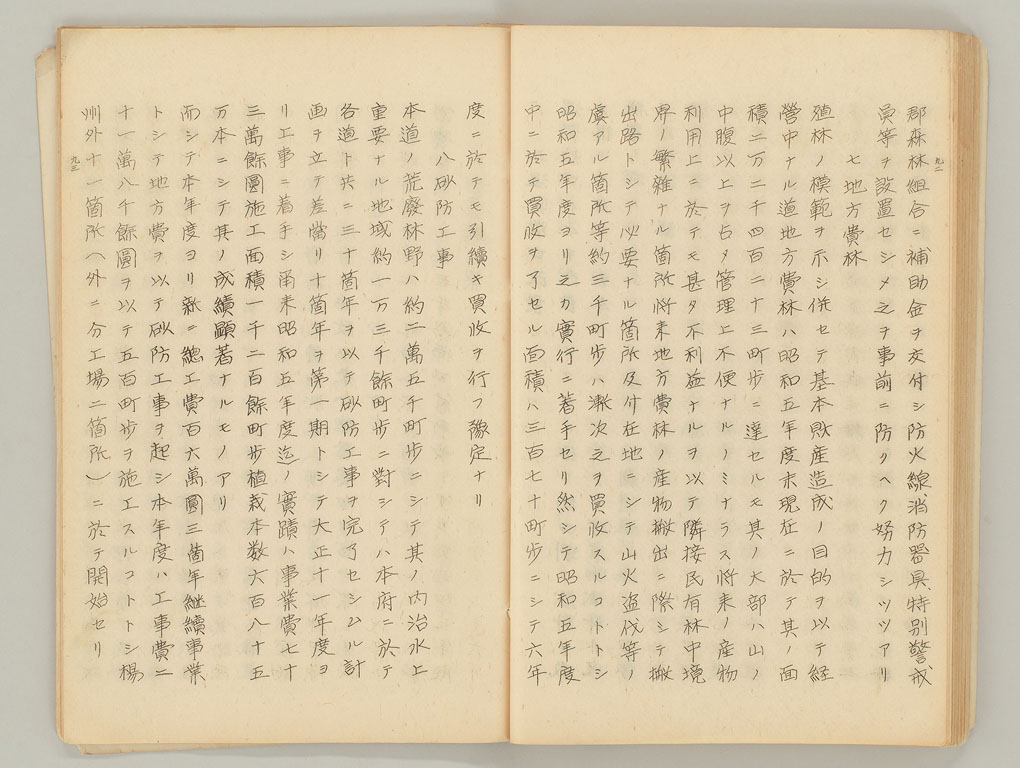 九二
郡森林組合ニ補助金ヲ交付シ防火線消防器具特別警戒
員等ヲ設置セシメ之ヲ事前ニ防クヘク努力シツツアリ
七 地方費林
殖林ノ模範ヲ示シ併セテ基本財産造成ノ目的ヲ以テ経
營中ナル道地方費林ハ昭和五年度末現在ニ於テ其ノ面
積二万二千四百二十三町歩ニ達セルモ其ノ大部ハ山ノ
中腹以上ヲ占メ管理上不便ナルノミナラス将来ノ産物
利用上ニ於テモ甚タ不利益ナルヲ以テ隣接民有林中境
界ノ繁雑ナル箇所将来地方費林ノ産物搬出ニ際シテ搬
出路トシテ必要ナル箇所及付在地ニシテ山火盗伐等ノ
虞アル箇所等約三千町歩ハ漸次之ヲ買收スルコトトシ
昭和五年度ヨリ之カ實行ニ著手セリ然シテ昭和五年度
中ニ於テ買收ヲ了セル面積ハ三百七十町歩ニシテ六年
度ニ於テモ引續キ買收ヲ行フ豫定ナリ
八 砂防工事
本道ノ荒廢林野ハ約二萬五千町歩ニシテ其ノ内治水上
重要ナル地域約一万三千餘町歩ニ對シテハ本府ニ於テ
各道ト共ニ三十箇年ヲ以テ砂防工事ヲ完了セシムル計
画ヲ立テ差當リ十箇年ヲ第一期トシテ大正十一年度ヨ
リ工事ニ着手シ爾来昭和五年度迄ノ實蹟ハ事業費七十
三萬餘圓施工面積一千二百餘町歩植栽本数六百八十五
万本ニシテ其ノ成績顕著ナルモノアリ
而シテ本年度ヨリ新ニ總工費百六萬圓三箇年継續事業
トシテ地方費ヲ以テ砂防工事ヲ起シ本年度ハ工事費二
十一萬八千餘圓ヲ以テ五百町歩ヲ施工スルコトトシ楊
州外十一箇所(外ニ分工場二箇所)ニ於テ開始セリ
九三